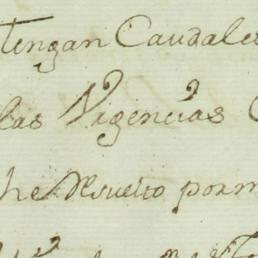 tengan Caudales
las Vrgencias
he Resuelto por m